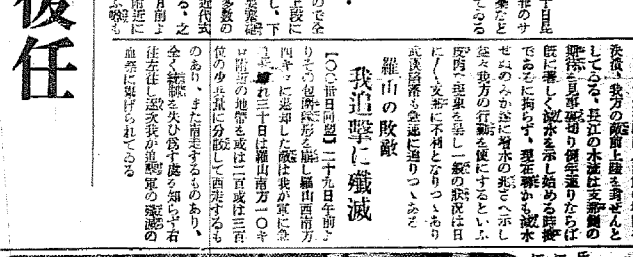 決潰、我方の敵前上陸を封ぜんと
してゐる、長江の水流は支那側の
期待を見事裏切り例年通りならば
既に著しく減水を示し始める時候
であるに拘らず、現在聊かも減水
せぬのみか逆に増水の兆さへ示し
益々我方の行動を便にするといふ
皮肉な現象を呈し一般の状況は日
に〳〵支那に不利となりつゝあり
武漢陥落も急速に迫りつゝある
羅山の敗敵
我追撃に殲滅
【〇〇卅日同盟】二十九日午前よ
りその包囲隊形を崩し羅山西南方
四キロに退却した敵は我が軍に急
追され三十日は羅山南方一〇キ
ロ附近の地帯を或は二百或は三百
位の少兵量に分散して西走するも
のあり、また南走するものあり、
全く統制を失ひ為す處を知らず右
往左往し逐次我が追撃軍の殲滅の
血祭に挙げられてゐる
後任